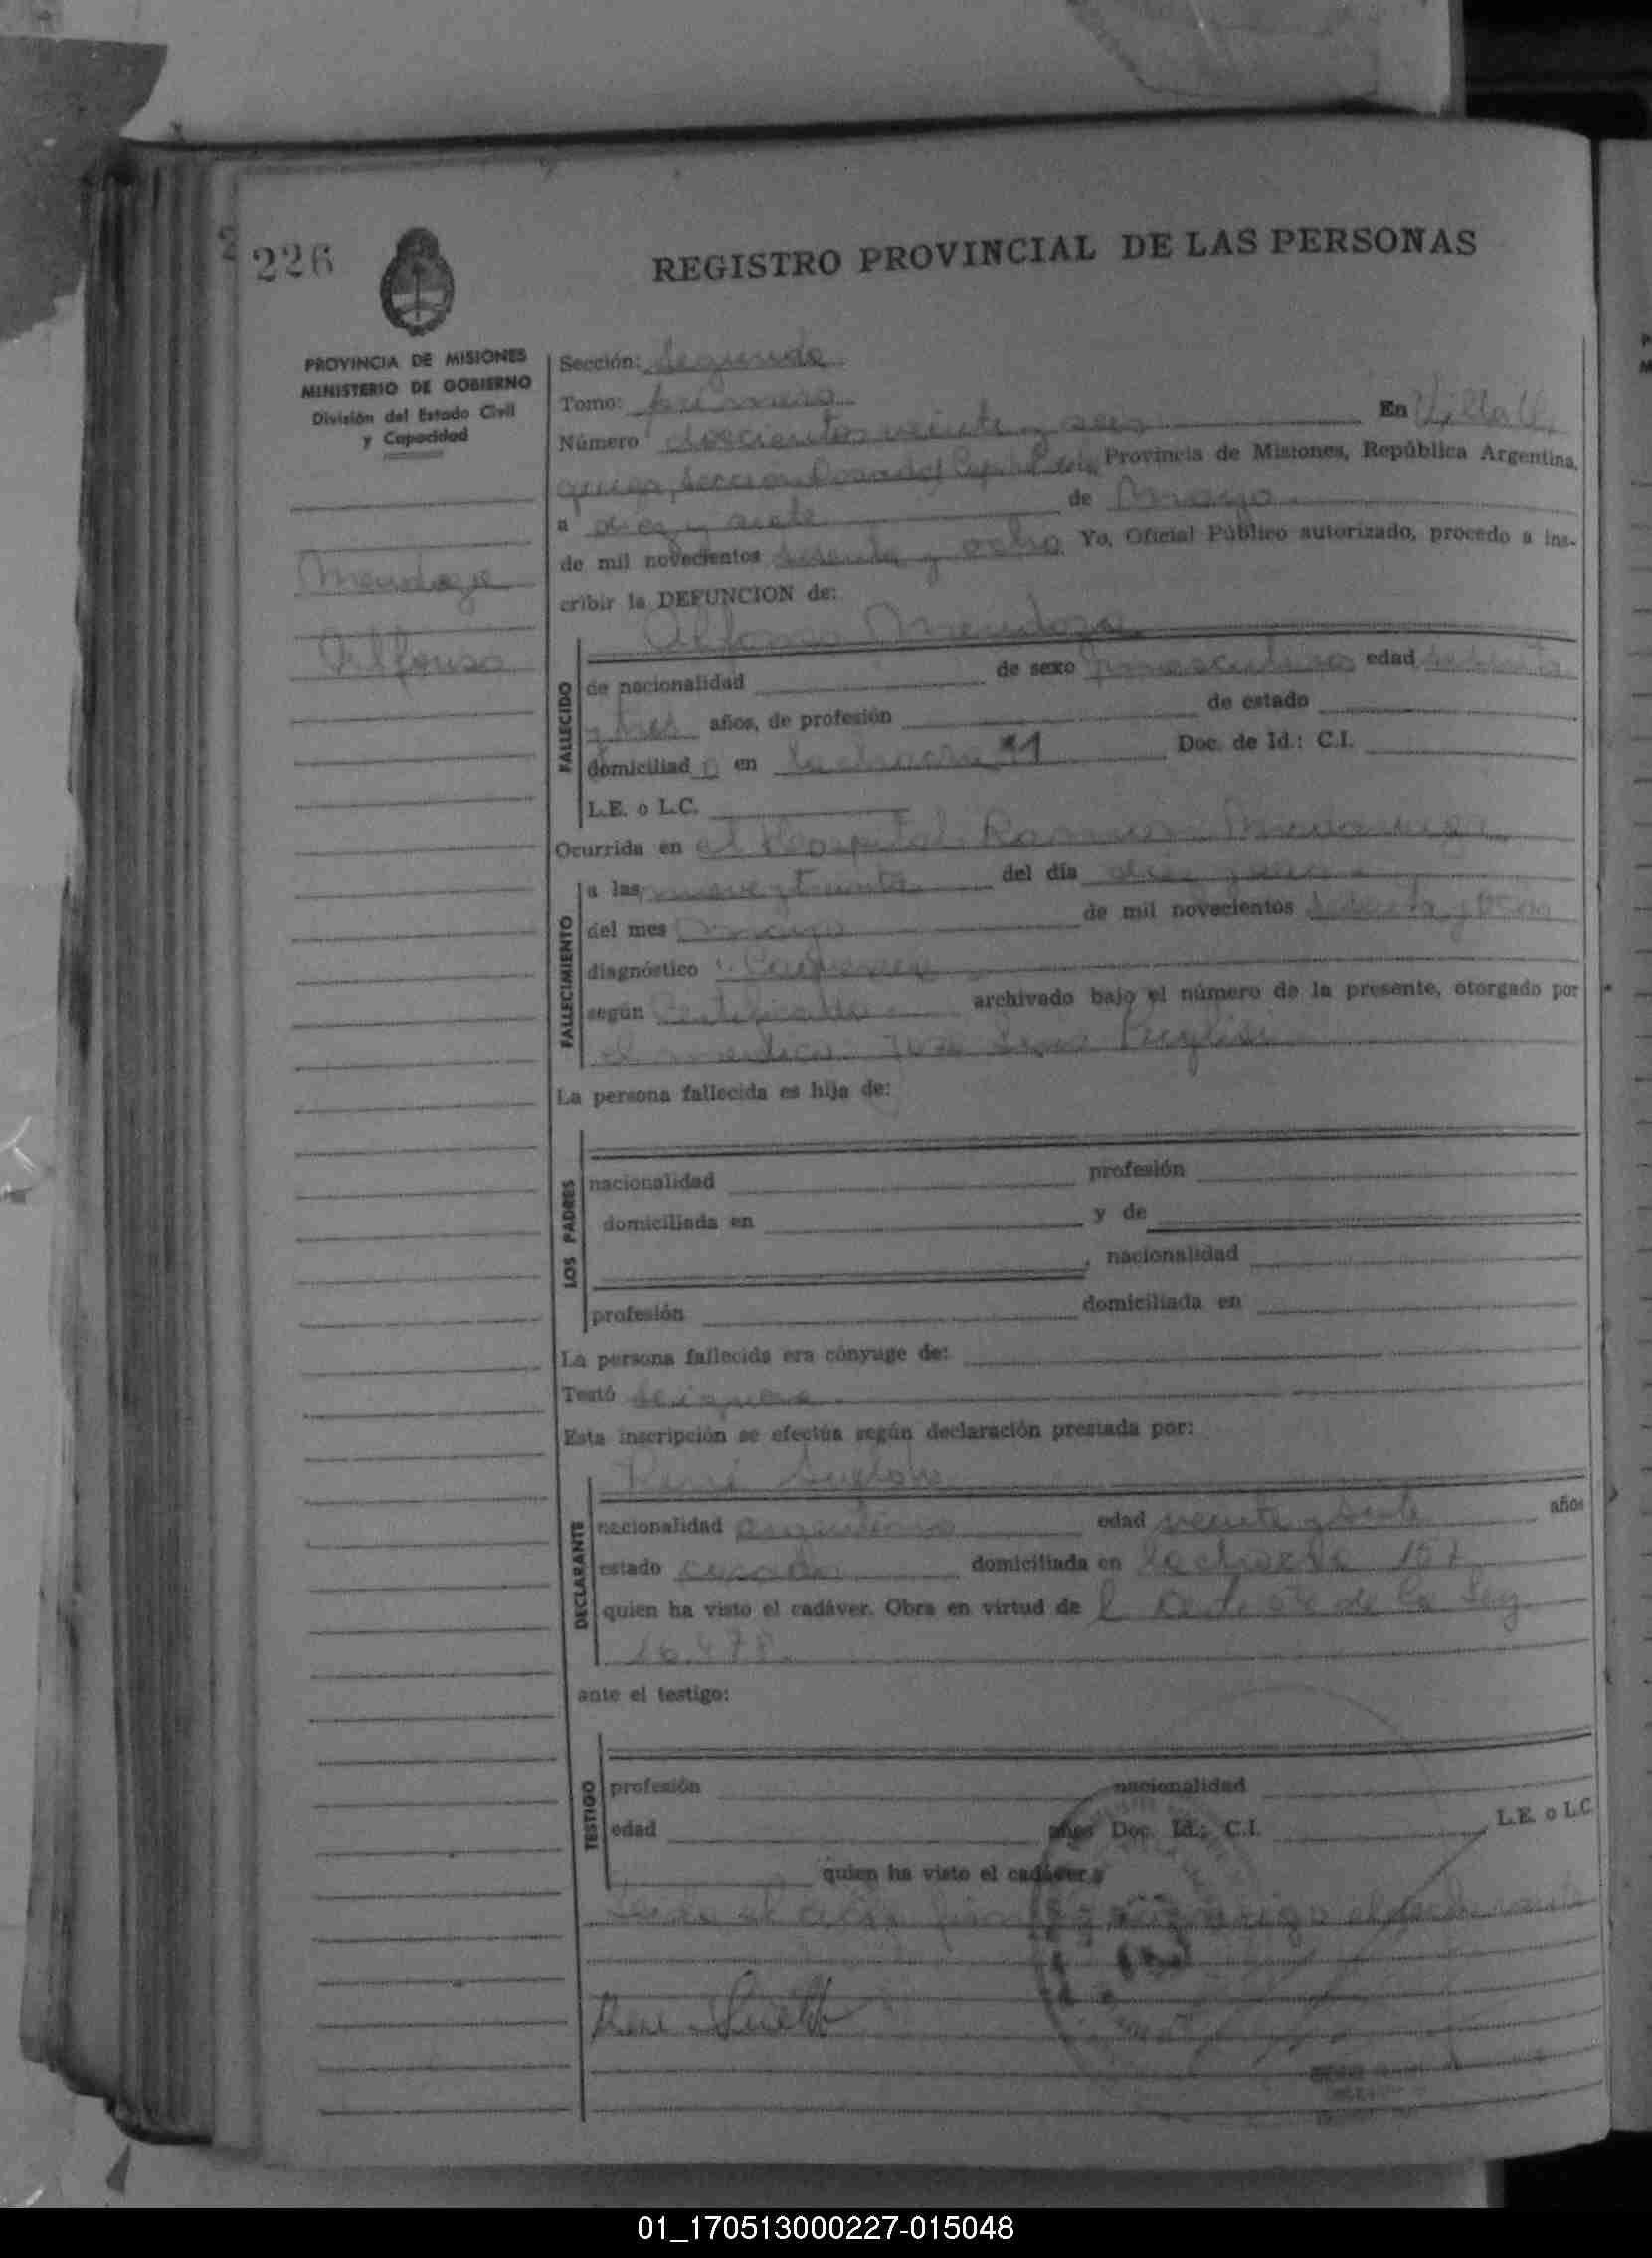 226
REGISTRO PROVINCIAL DE LAS PERSONAS
PROVINCIA DE MISIONES
MINISTERIO DE GOBIERNO
División del Estado Civil
y Capacidad
Mendoza
Alfonso
Sección: Segunda
Tomo: primero
Número doscientos veinte y seis En Villa
Provincia de Misiones, República Argentina,
a diez y siete de Mayo
de mil novecientos sesenta y ocho Yo, Oficial Público autorizado, procedo a ins-
cribir la DEFUNCION de:
Alfonso Mendoza
FALLECIDO
de nacionalidad de sexo masculino edad
y tres años, de profesión de estado
domiciliado en la chacra 11 Doc. de Id.: C.I.
L.E. o L.C.
Ocurrida en el Hospital Ramon Madariaga
FALLECIMIENTO
a las nueve y treinta del día
del mes Mayo de mil novecientos sesenta y ocho
diagnóstico
según Certificado archivado bajo el número de la presente, otorgado por
el medico
La persona fallecida es hija de:
LOS PADRES
nacionalidad profesión
domiciliada en y de
, nacionalidad
profesión domiciliada en
La persona fallecida era cónyuge de:
Testó se ignora
Esta inscripción se efectúa según declaración prestada por:
René
DECLARANTE
nacionalidad argentino edad veinte y siete años
estado casado domiciliada en la chacra 157
quien ha visto el cadáver. Obra en virtud de l de la Ley
16.478.
ante el testigo:
TESTIGO
profesión nacionalidad
edad años Doc. Id.: C.I. L.E. o L.C.
quien ha visto el cadáver y
Leida el acta
01_170513000227-015048